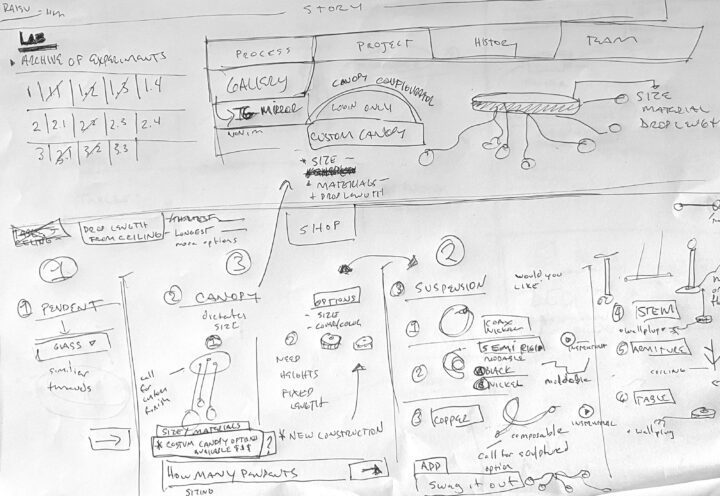 STORY
LAB
ARCHIVE OF EXPERIMENTS
1 1.1 1.2 1.3 1.4
2 2.1 2.2 2.3 2.4
3 3.1 3.2 3.3
PROCESS
PROJECT
HISTORY
TEAM
GALLERY
IG MIRROR
CANOPY CONFIGURATOR
LOGIN ONLY
CUSTOM CANOPY
* SIZE
MATERIALS
+ DROP LENGTH
SIZE
MATERIAL
DROP LENGTH
DROP LENGTH
FROM CEILING
LONGEST
more options
SHOP
1
3
2
1 PENDENT
GLASS
similar
threads
2 CANOPY
dictates
SIZE
1
call
for
custom
finish
SIZE/MATERIALS
* COSTUM CANOPY OPTIONS
AVAILABLE $$$
?
HOW MANY PENDANTS
OPTIONS
- SIZE
NEED
HEIGHTS
FIXED
LENGTH
* NEW CONSTRUCTION
3 SUSPENSION
would you
LIKE
1
2
SEMI RIGID
BLACK
NICKEL
moldable
3 COPPER
composable
call for sculpted
option
ADD
Swag it out
4 STEM
5 ARMITURE
CEILING
TABLE
wallplug